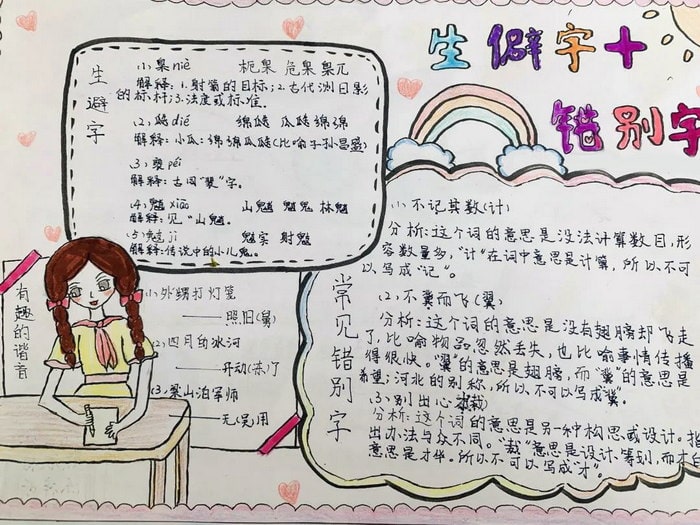 生僻字十
错别字
生避字
(1)臬niè 桅臬 危臬 臬兀
解释:1.射箭的目标;2.古代测日影
的标杆;3.法度或标准。
(2)瓞dié 绵瓞 瓜瓞绵绵
解释:小瓜:绵绵瓜瓞(比喻子孙昌盛)
(3) péi
解释:古同"裴"字。
(4)魈xiāo 山魈 林魈
解释:见"山魈。
(5)鬾jì 鬾实 射鬾
解释:传说中的小儿鬼。
有趣的谐音
(1)外甥打灯笼
——照旧(舅)
(2)四月的冰河
——开动(冻)了
(3)梁山泊军师
——无(吴)用
常见错别字
(1)不记其数(计)
分析:这个词的意思是没法计算数目,形
容数量多,"计"在词中意思是计算,所以不可
以写成"记"。
(2)不冀而飞(翼)
分析:这个词的意思是没有翅膀却飞走
了,比喻物品忽然丢失,也比喻事情传播
得很快。"翼"的意思是翅膀,而"冀"的意思是
希望;河北的别称,所以不可以写成"冀。
(3)别出心(裁)
分析:这个词的意思是另一种构思或设计。指
出办法与众不同。"裁"意思是设计、筹划,而才白
意思是才华。所以不可以写成"才"。